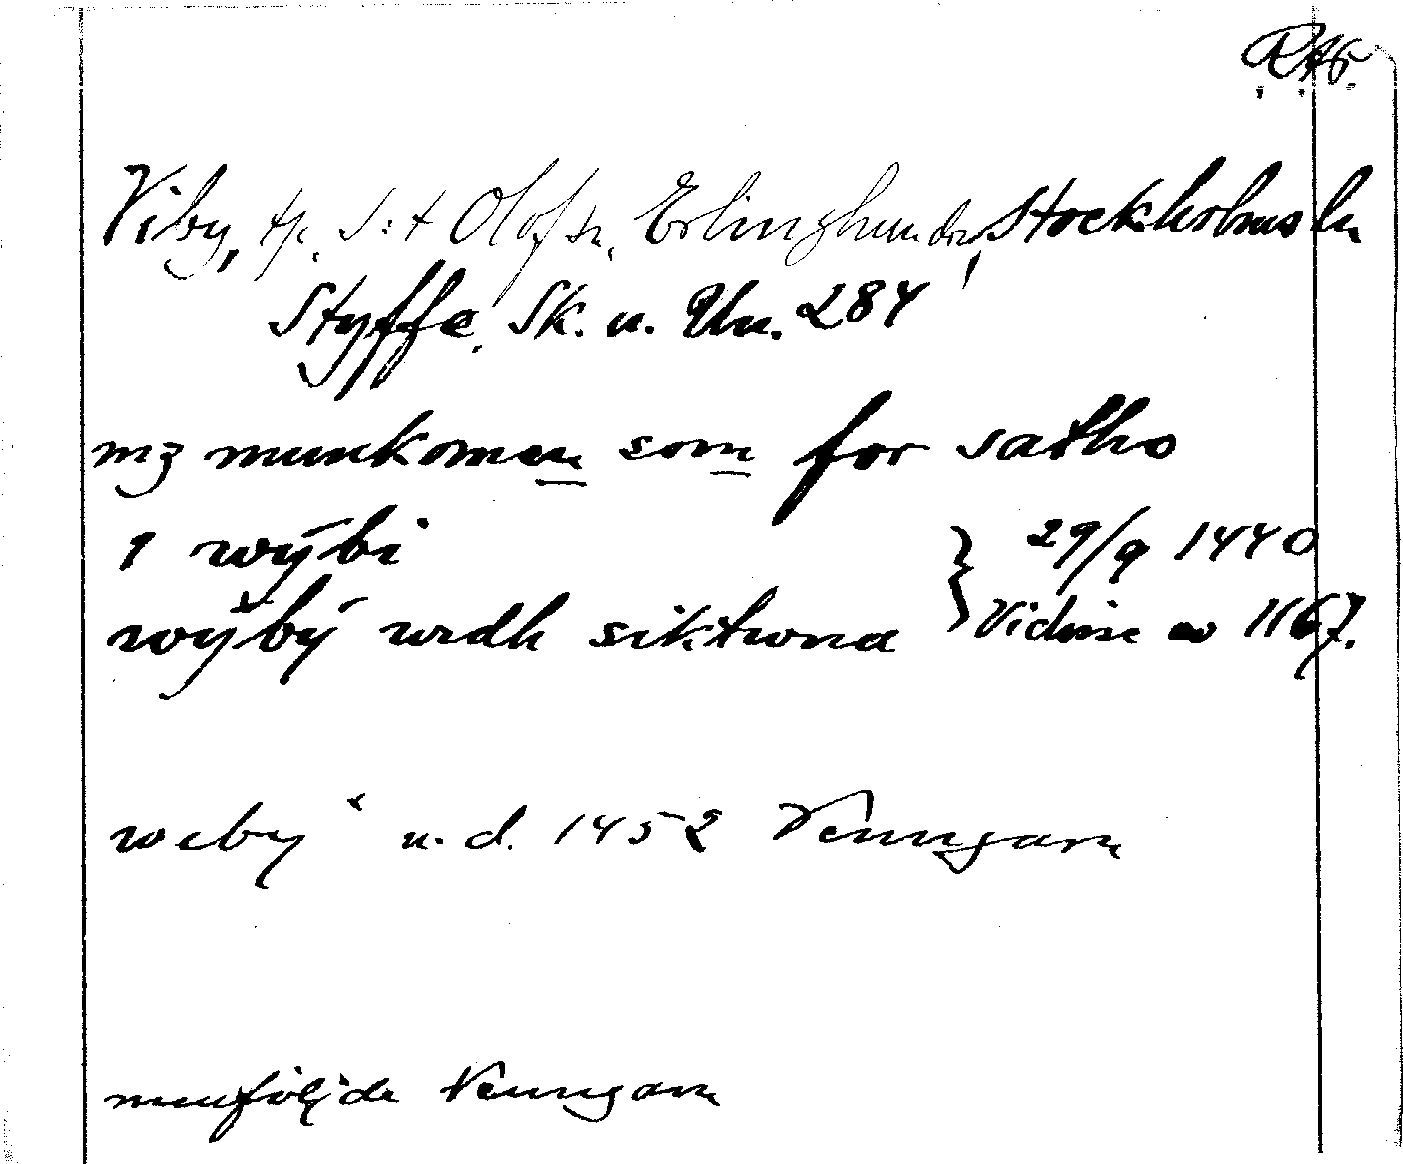 RAp.
Viby, tp. S:t Olofs sn, Erlinghundra, Stockholms ln
Styffe, Sk. u. Un. 284
mz munkomen som for satho
1 wÿbi
wÿbÿ wedh siktuna } 29/9 1440
Vidisse av 1167.
weby u. d. 1452 Venngarn
Venngarn